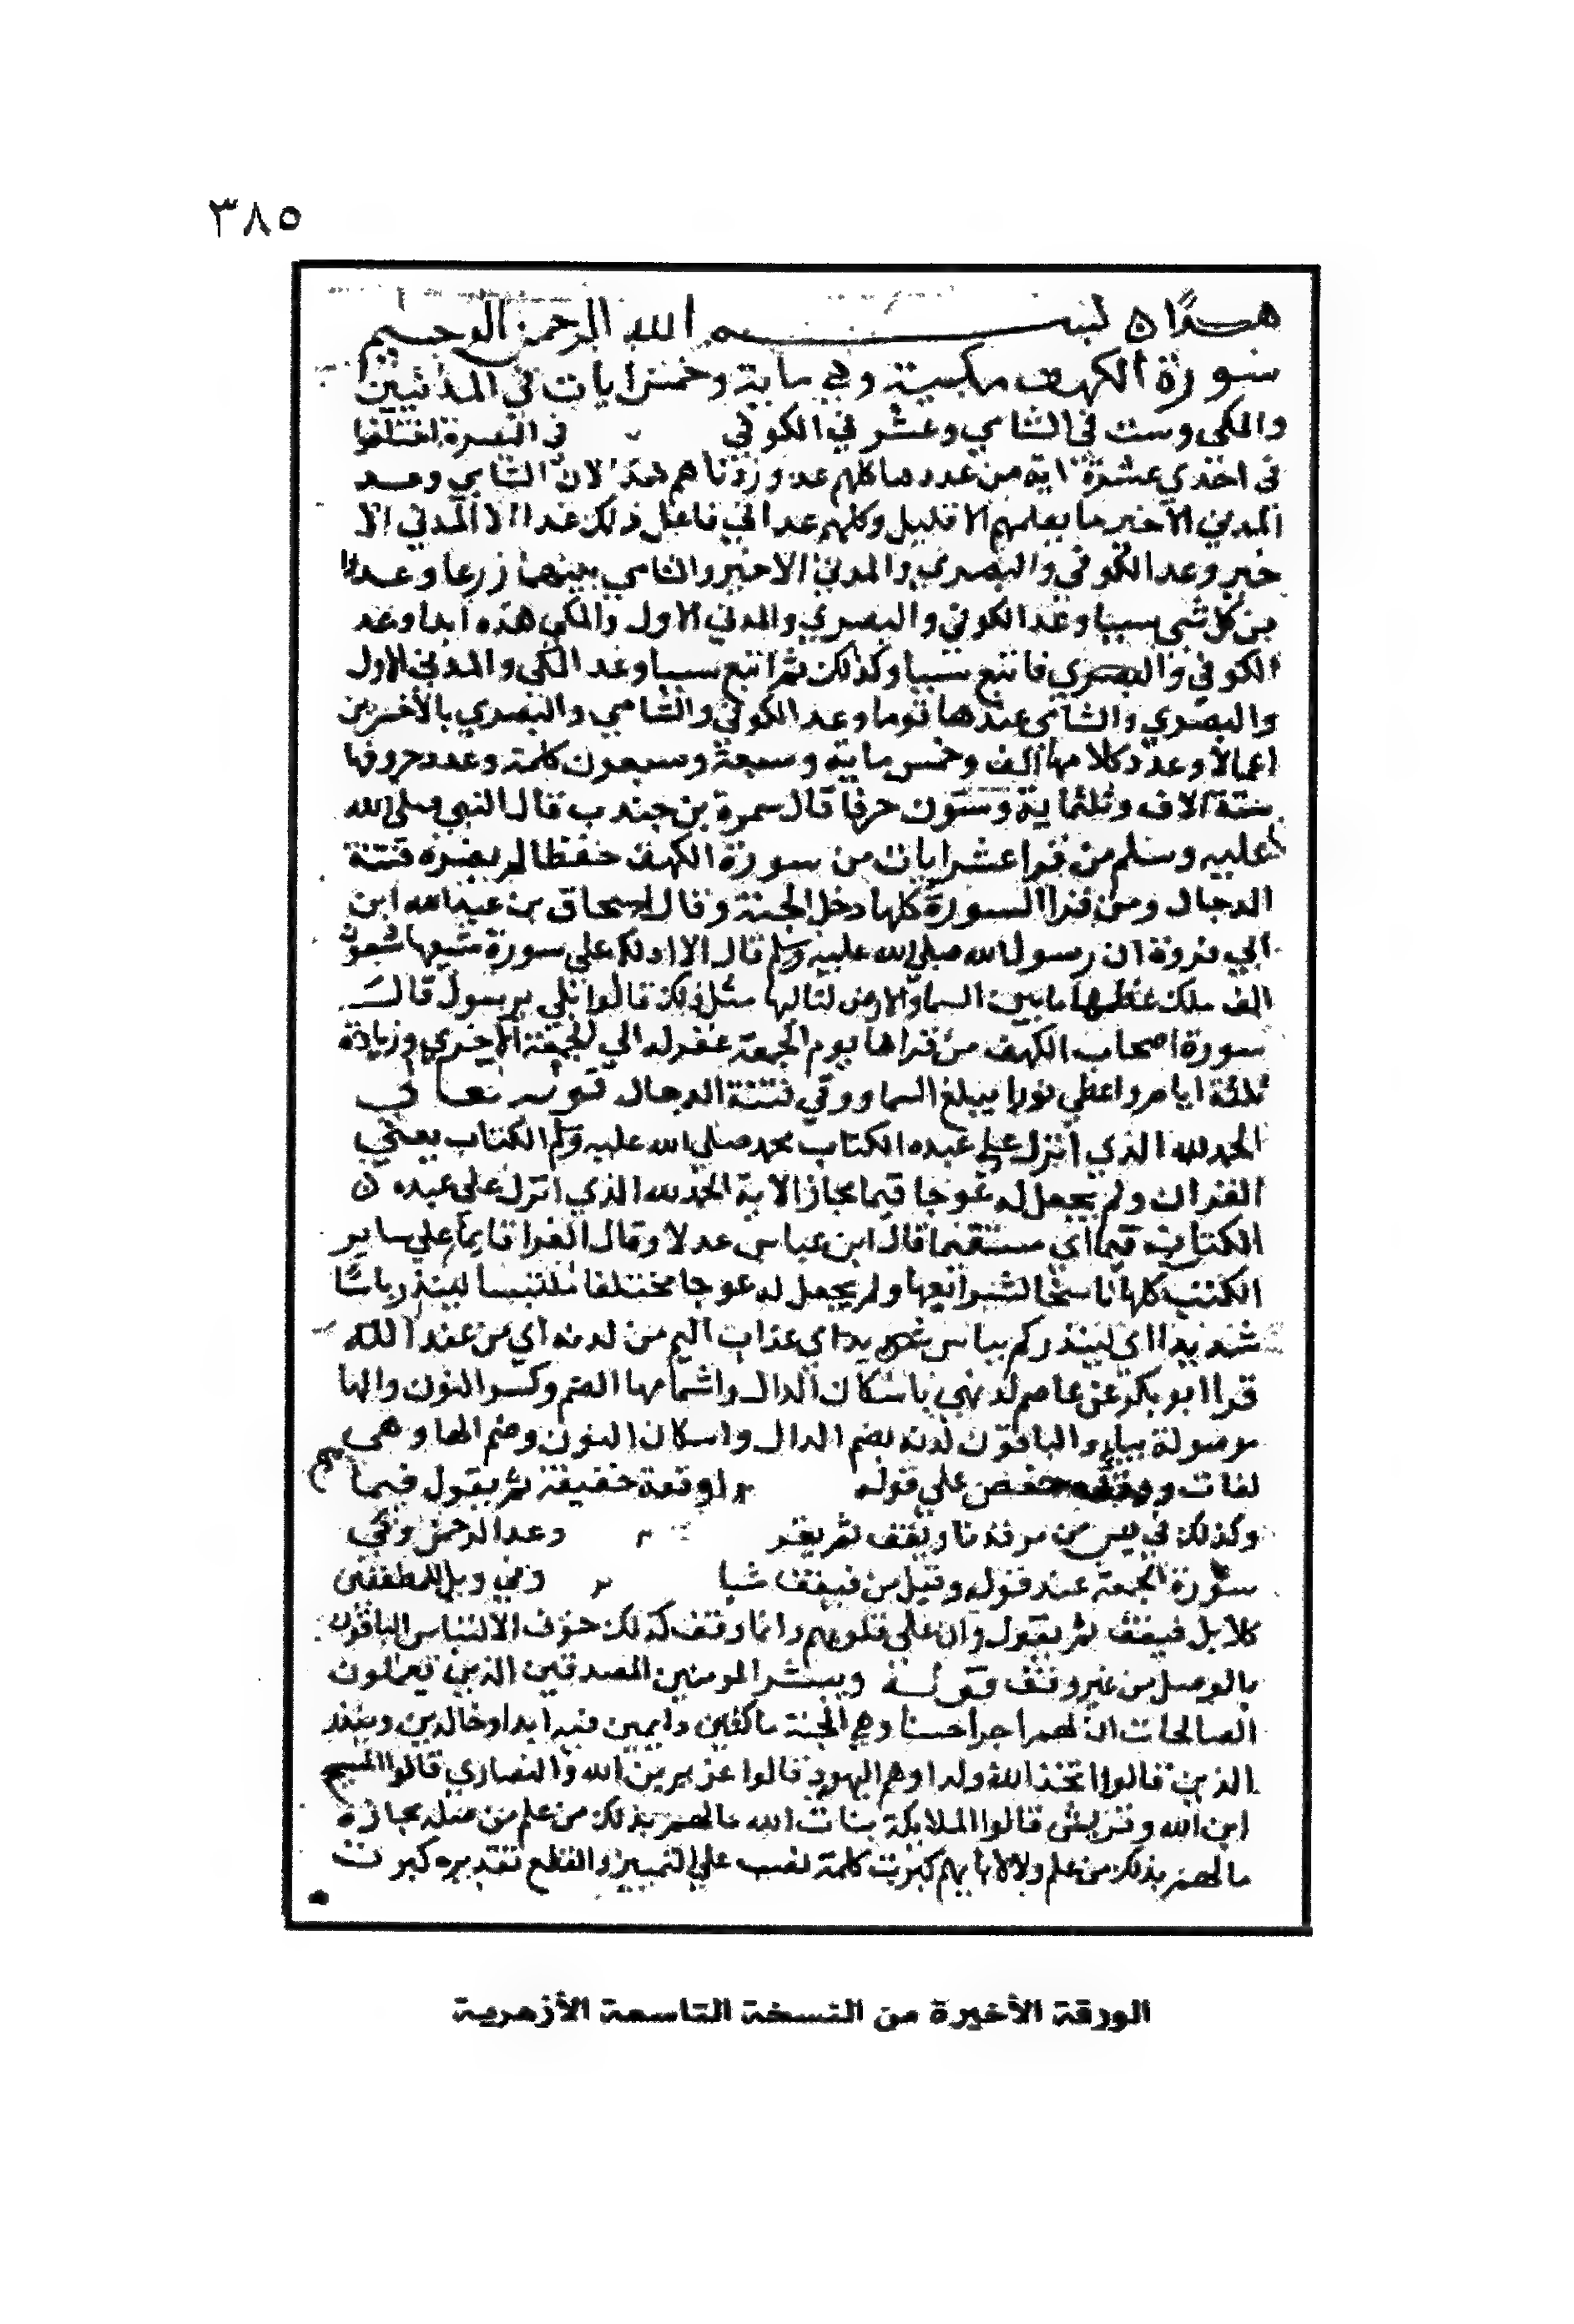 ٣٨٥
هذا ٥ بسم الله الرحمن الرحيم
سورة الكهف مكية وهي ماية وخمس ايات في المدنيين
والمكي وست في الشامي وعشر في الكوفي في البصرة اختلفا
في احدي عشرة اية من عددها كلهم عد وزدناهم هدا لان الشامي وعد
المدني الاخير ما يعلمهم الا قليل وكلهم عد اني فاعل ذلك غدا الا المدني الا
خير وعد الكوفي والبصري والمدني الاخير والشامي بينهما زرعا وعدوا
من كل شي سببا وعد الكوفي والبصري والمدني الاول والمكي هذه ابدا وعد
الكوفي والبصري فاتبع سببا وكذلك ثم اتبع سببا وعد المكي والمدني الاول
والبصري والشامي عندها قوما وعد الكوفي والشامي والبصري بالأخسرين
اعمالا وعدد كلامها الف وخمس ماية وسبعة وسبعون كلمة وعدد حروفها
ستة الاف وثلثماية وستون حرفا قال سمرة بن جندب قال النبي صلي الله
عليه وسلم من قرا عشر ايات من سورة الكهف حفظا لم يضره فتنة
الدجال ومن قرا السورة كلها دخل الجنة وقال اسحاق بن عبد الله ابن
ابي فروة ان رسول الله صلي الله عليه وسلم قال الا ادلكم علي سورة شيعها سبعون
الف ملك عظمها ما بين السما والارض لتاليها مثل ذلك قالوا بلي يرسول قال
سورة اصحاب الكهف من قراها يوم الجمعة غفر له الي الجمعة الاخري وزيادة
ثلثة ايام واعطي نورا يبلغ السما ووقي فتنة الدجال قوله تعالي
الحمد لله الذي انزل علي عبده الكتاب محمد صلي الله عليه وسلم الكتاب يعني
القران ولم يجعل له عوجا قيما مجاز الاية الحمد لله الذي انزل علي عبده ٥
الكتاب قيما اي مستقيما قال ابن عباس عدلا وقال الفرا قايما علي ساير
الكتب كلها ناسخا لشرايعها ولم يجعل له عوجا مختلفا ملتبسا لينذر باسا
شديدا اي لينذركم بباس شديد اي عذاب اليم من لدنه اي من عند الله
قرا ابو بكر عن عاصم لدنهي باسكان الدال واشمامها الضم وكسر النون والها
موصولة بياء والباقون لدنه بضم الدال واسكان النون وضم الها وهي
لغات ووقف حفص علي قوله وقعة خفيفة ثم يقول قيما
وكذلك في يس من مرقدنا ويقف ثم يقر وعد الرحمن وفي
سورة الجمعة عند قوله وقيل من فيقف شيا وفي ويل للمطففين
كلا بل فيقف ثم يقول وان علي قلوبهم وانما وقف كذلك خوف الالتباس الباقون
بالوصل من غير وقف قوله ويبشر المومنين المصدقين الذين يعملون
الصالحات ان لهم اجرا حسنا وهي الجنة ماكثين دايمين فيه ابدا وخالدين وينذر
الذين قالوا اتخذ الله ولدا وهم اليهود قالوا عزير بن الله والنصاري قالوا المسيح
ابن الله وقريش قالوا الملايكة بنات الله مالهم بذلك من علم من صلة مجازه
مالهم بذلك من علم ولا لابايهم كبرت كلمة نصب علي التمييز والقطع تقديره كبرت
الورقة الأخيرة من النسخة التاسعة الأزهرية